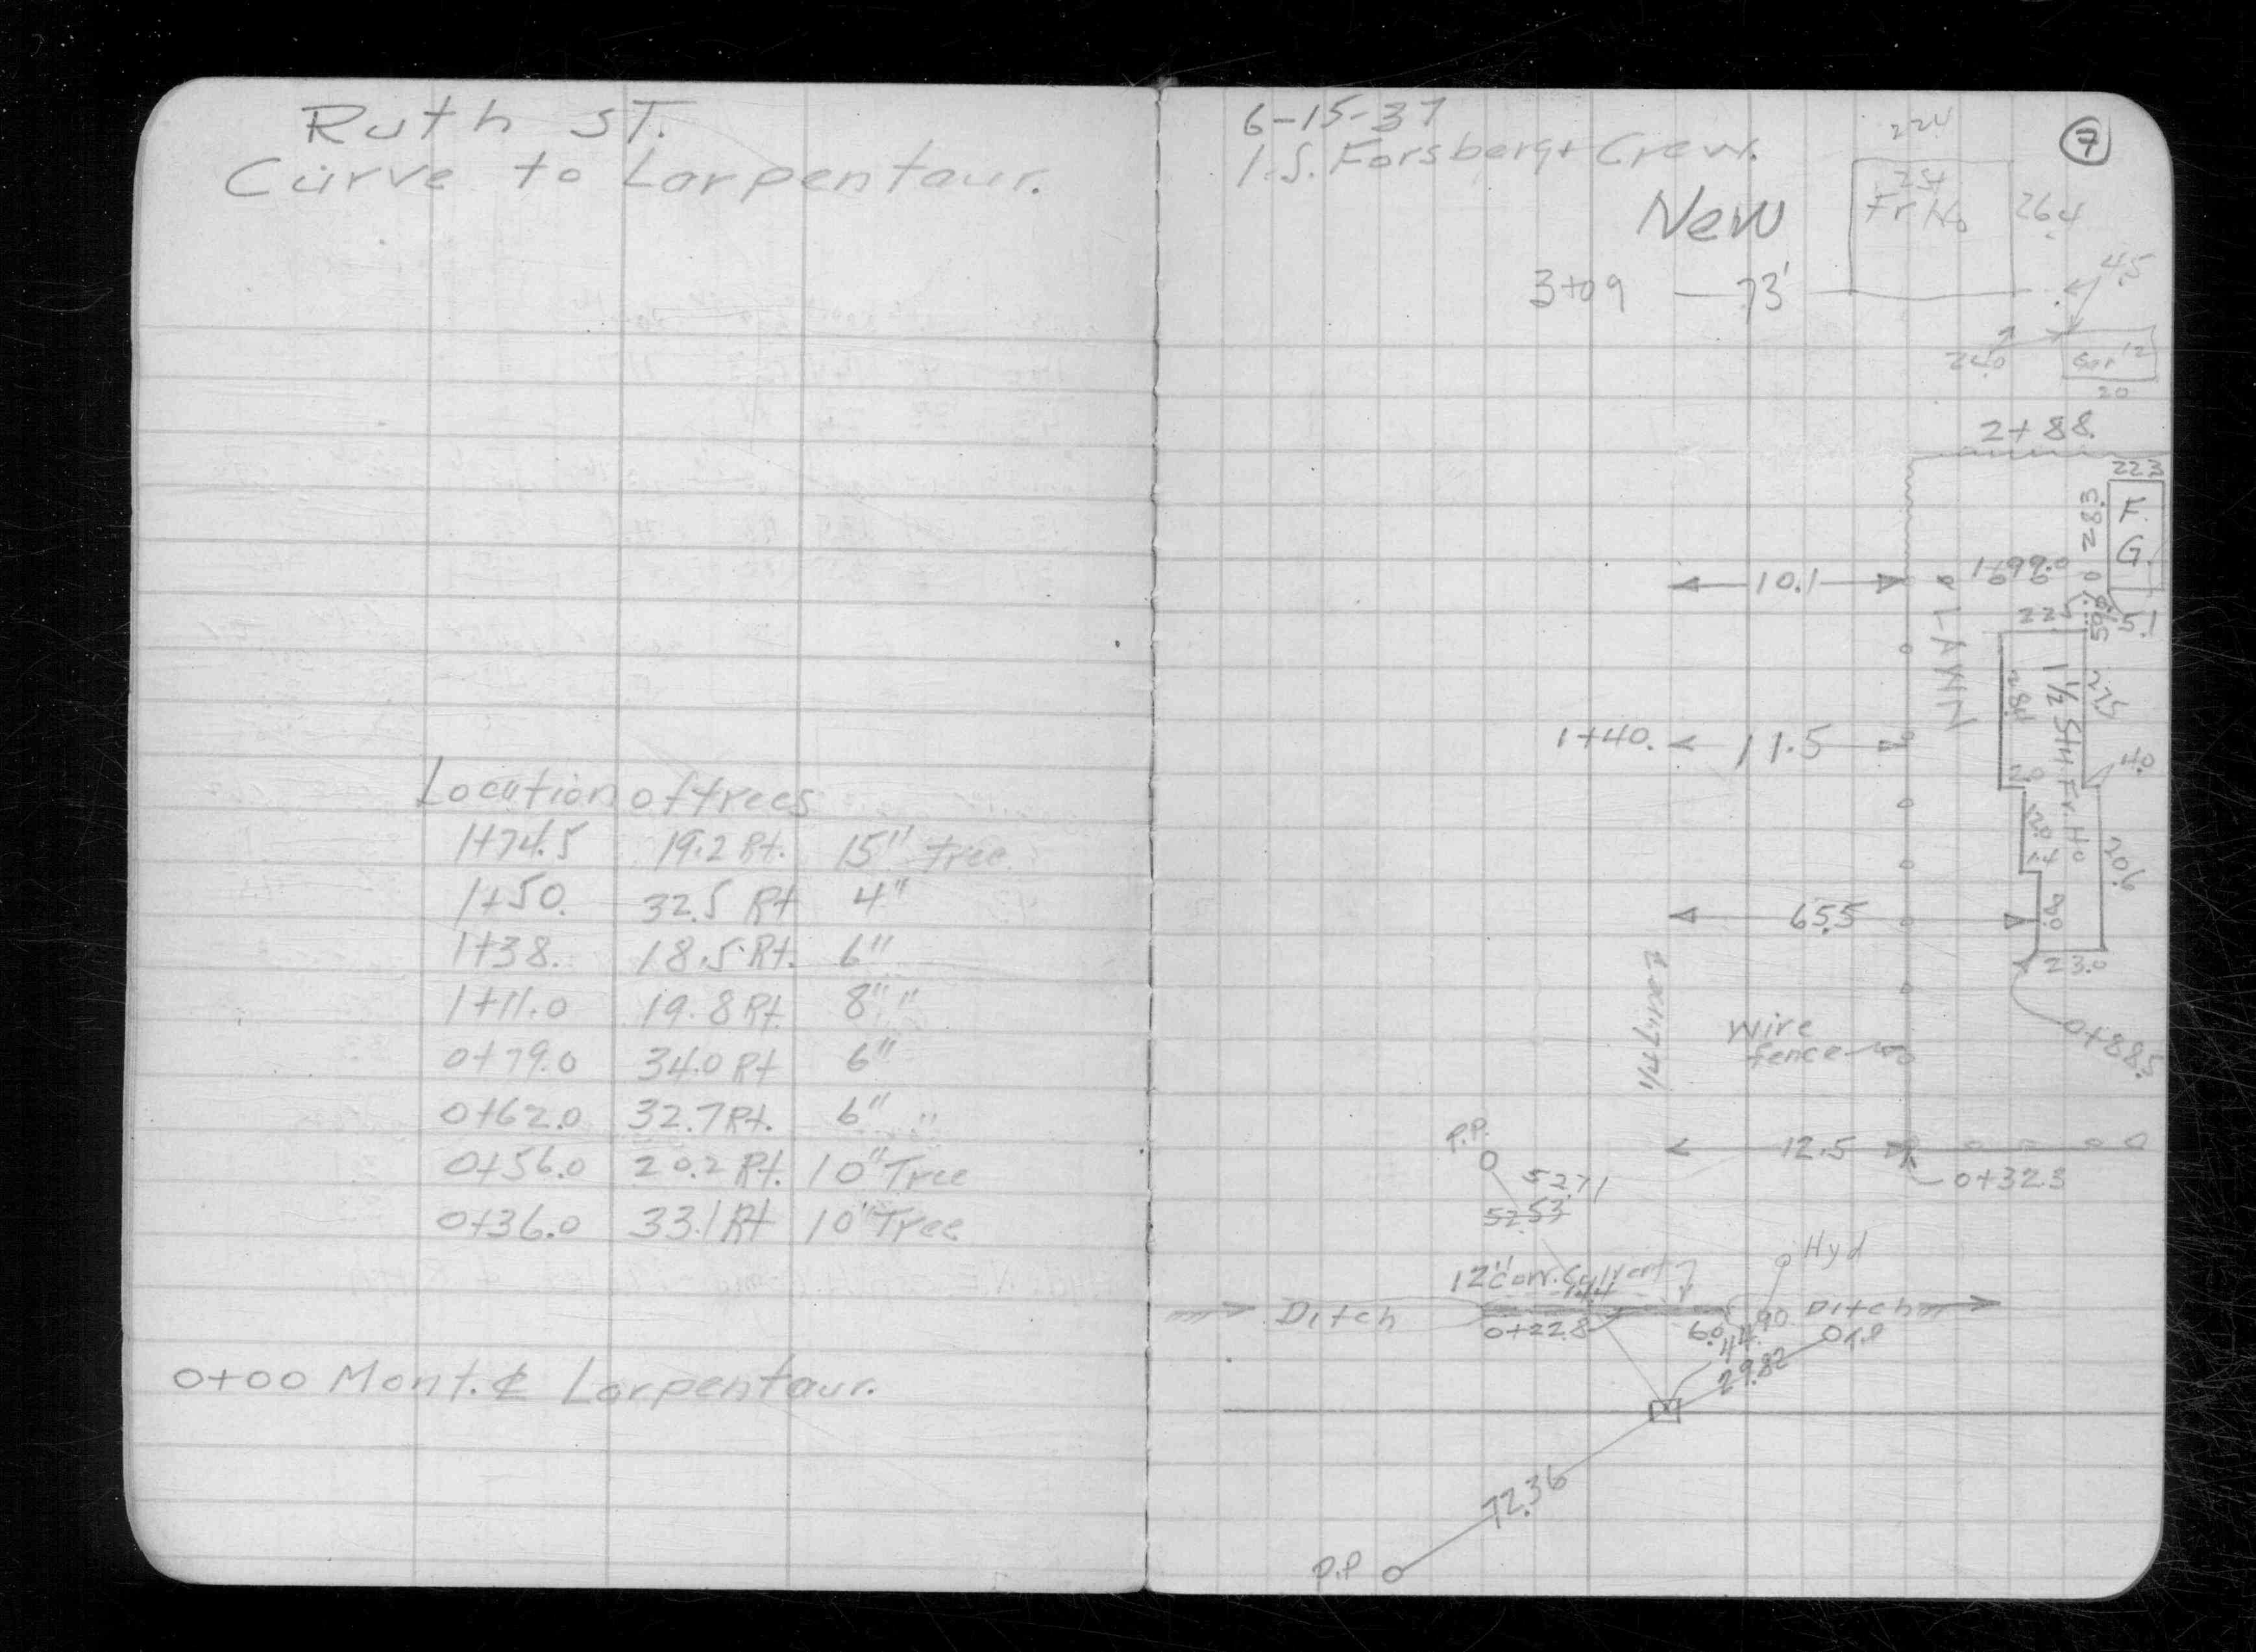 Ruth ST.
Curve to Larpenteur.
Location of trees
1+74.5 19.2 Rt. 15" tree
1+50. 32.5 Rt 4"
1+38. 18.5 Rt. 6"
1+11.0 19.8 Rt. 8" "
0+79.0 34.0 Rt 6"
0+62.0 32.7 Rt. 6" "
0+56.0 20.2 Rt. 10" Tree
0+36.0 33.1 Rt 10" Tree
0+00 Mont. ₵ Larpentaur.
6-15-37
7
I.S. Forsberg + Crew.
New
22.4
2 St
Fr Ho
26.4
3+09 73'
4.5
24.0
Gar 12
20
2+88.
22.3
28.3
F.
G.
10.1
1+99.0
22.5
59.0
5.1
LAWN
1 1/2 St. Fr. Ho
27.5
48.2
1+40. 11.5
2.0
4.0
12.0
1.4
20.6
65.5
23.0
1/4 Line
Wire
fence
0+88.5
P.P.
12.5
0+32.3
52.71
52.53
Hyd
12" Corr. Culvert
14.4
Ditch
0+22.8
6.0
44.90
Ditch
29.82
72.36
P.P